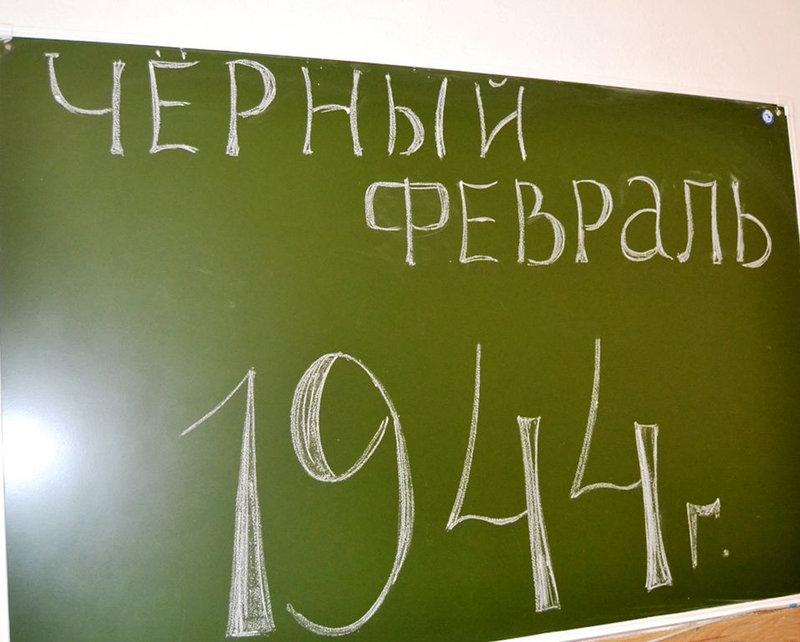 ЧЁРНЫЙ
ФЕВРАЛЬ
1944 г.